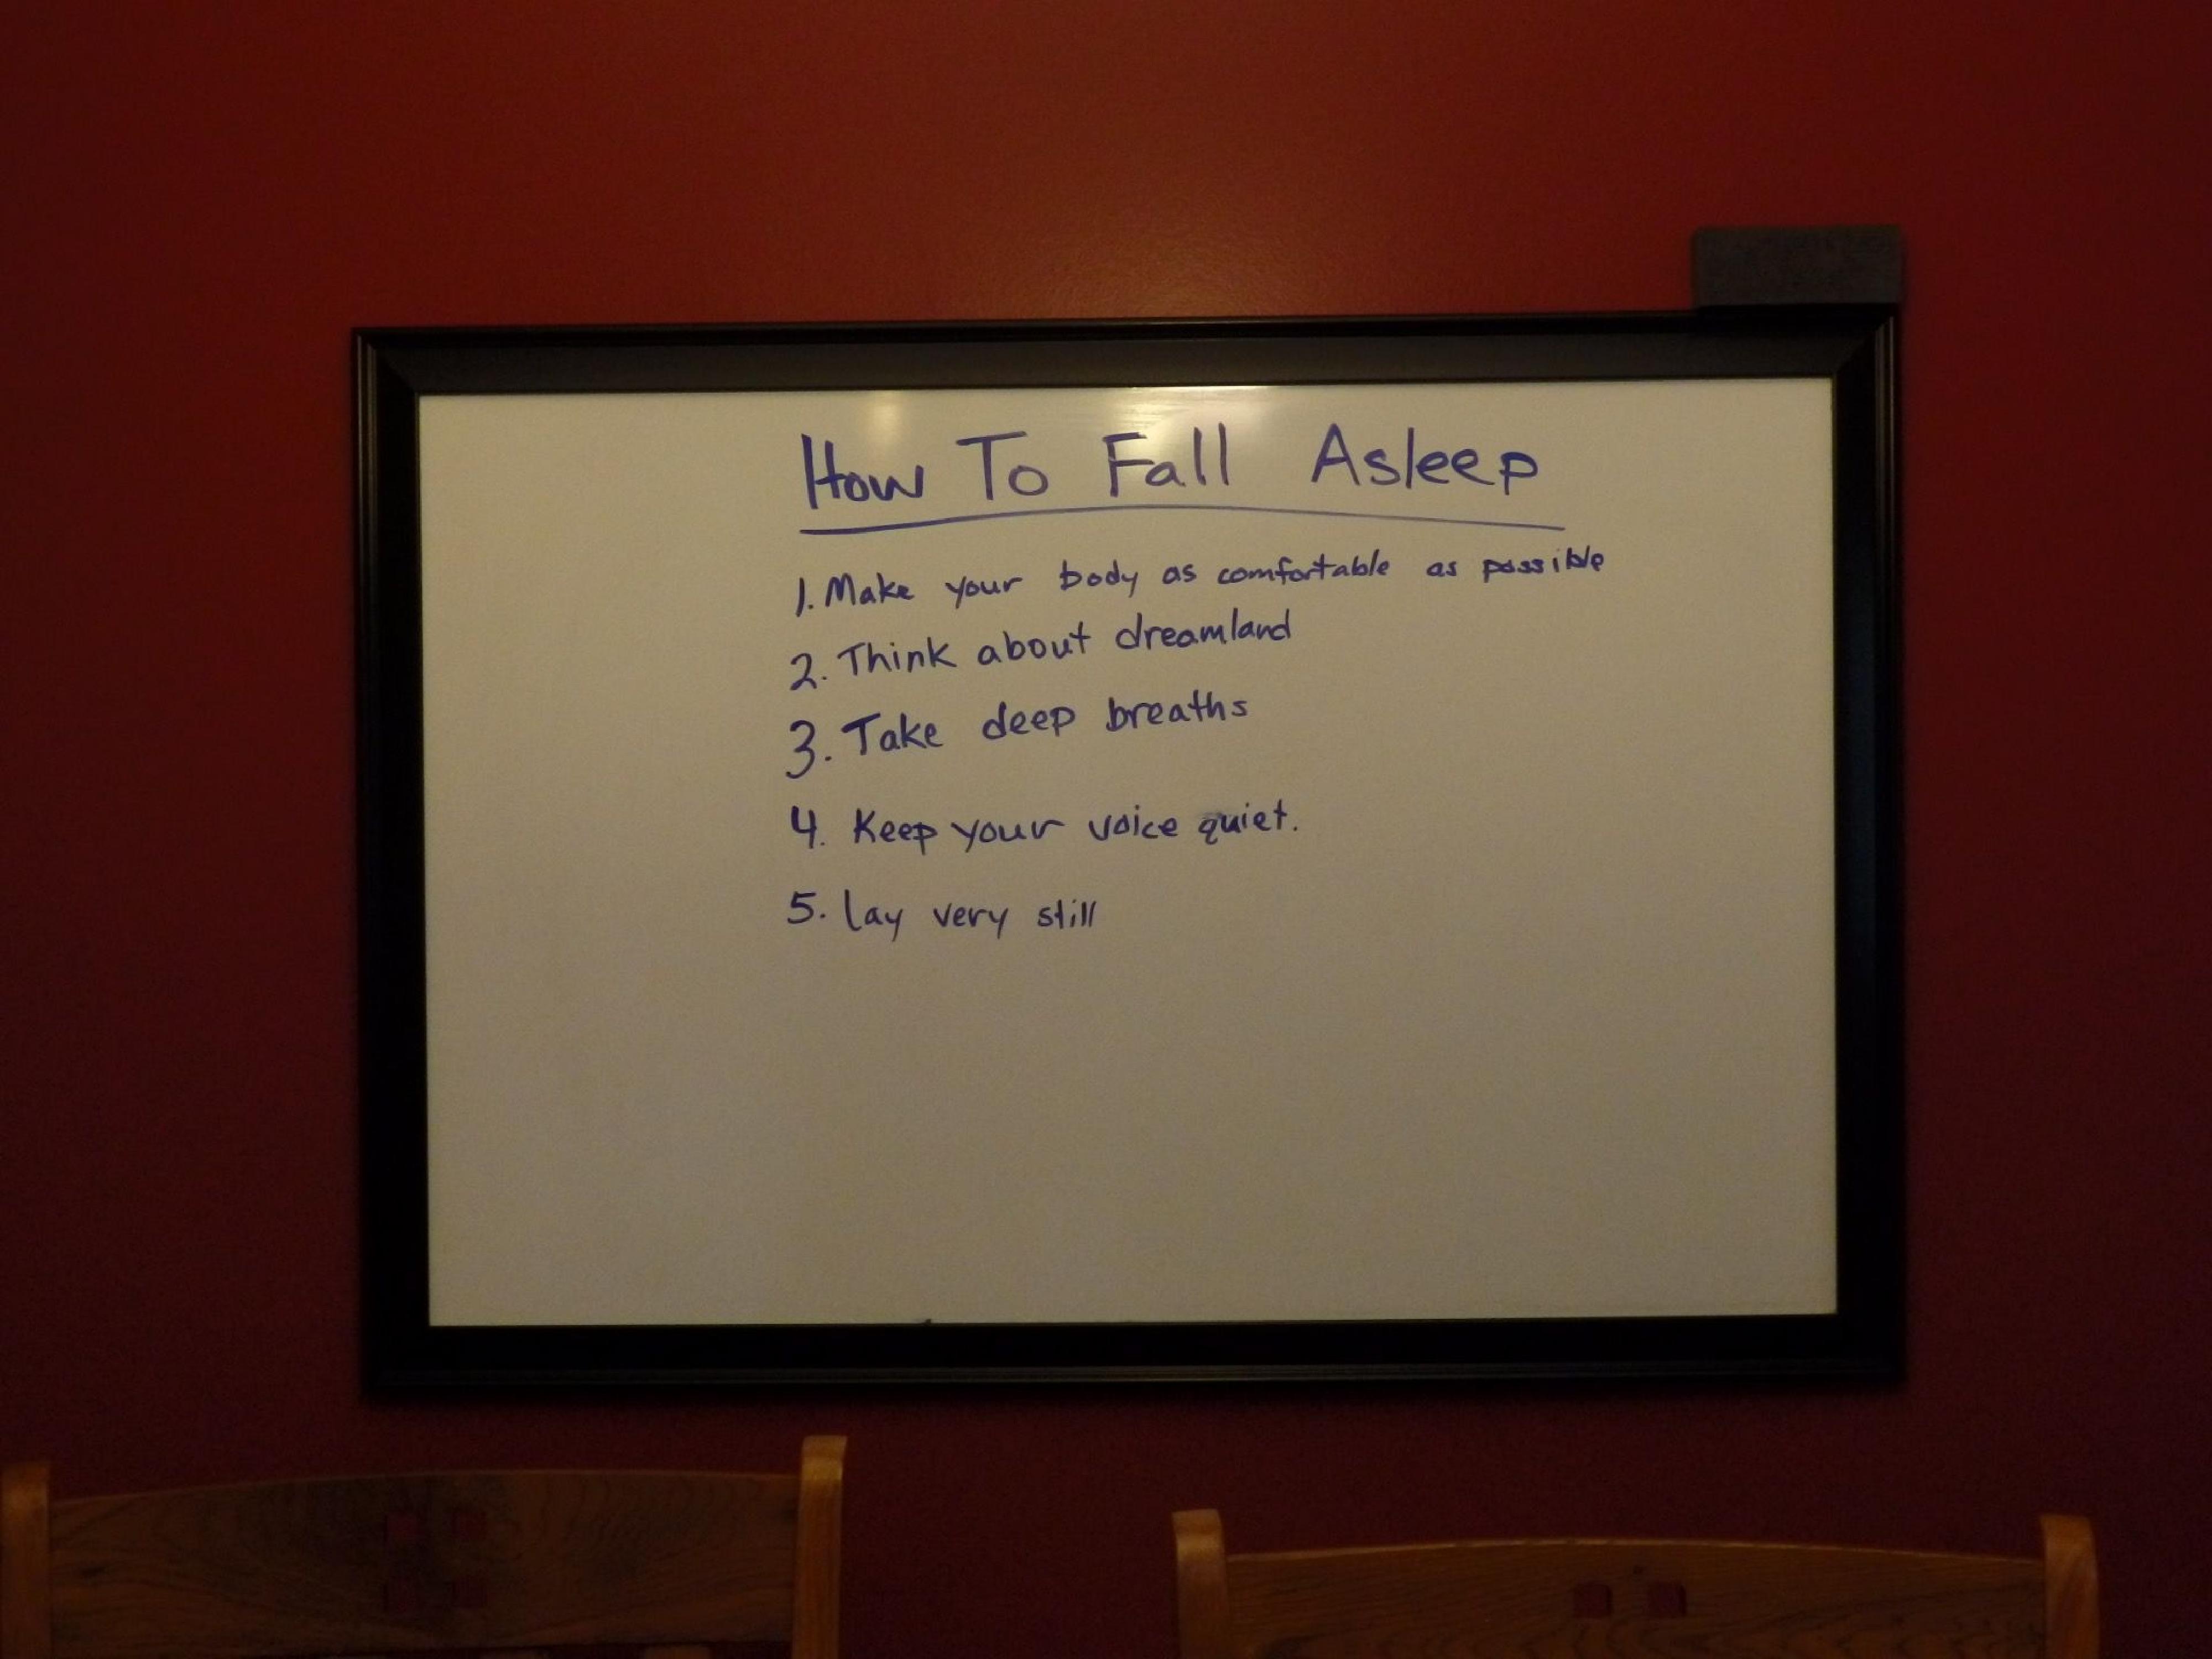 How To Fall Asleep
1. Make your body as comfortable as possible
2. Think about dreamland
3. Take deep breaths
4. Keep your voice quiet.
5. lay very still